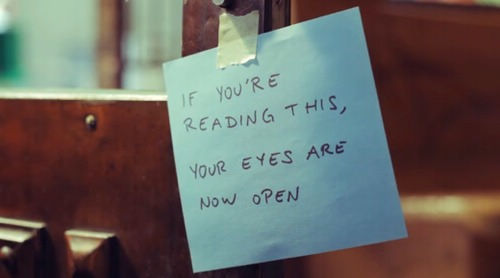 IF YOU'RE
READING THIS,
YOUR EYES ARE
NOW OPEN